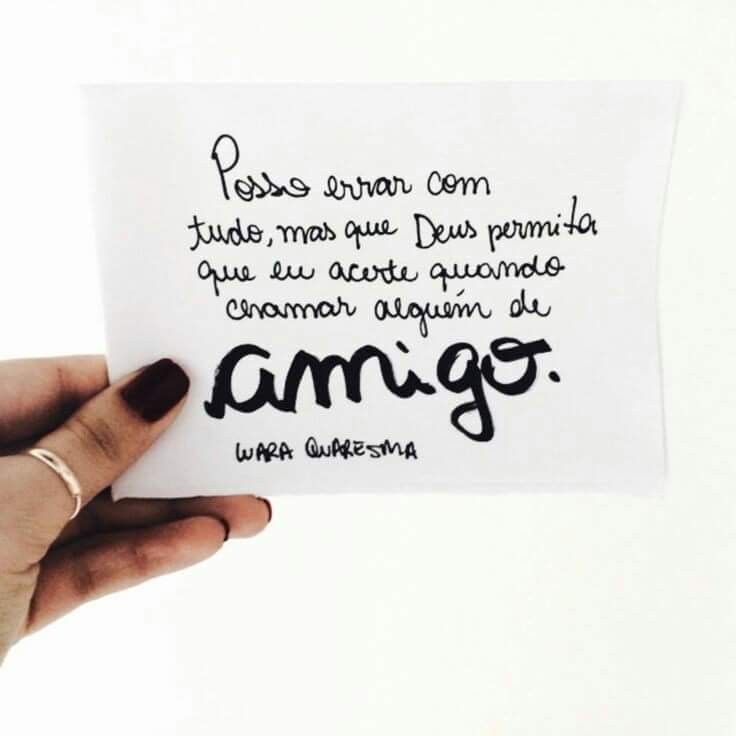 Posso errar com
tudo, mas que Deus permita
que eu acerte quando
chamar alguém de
amigo.
LUARA QUARESMA